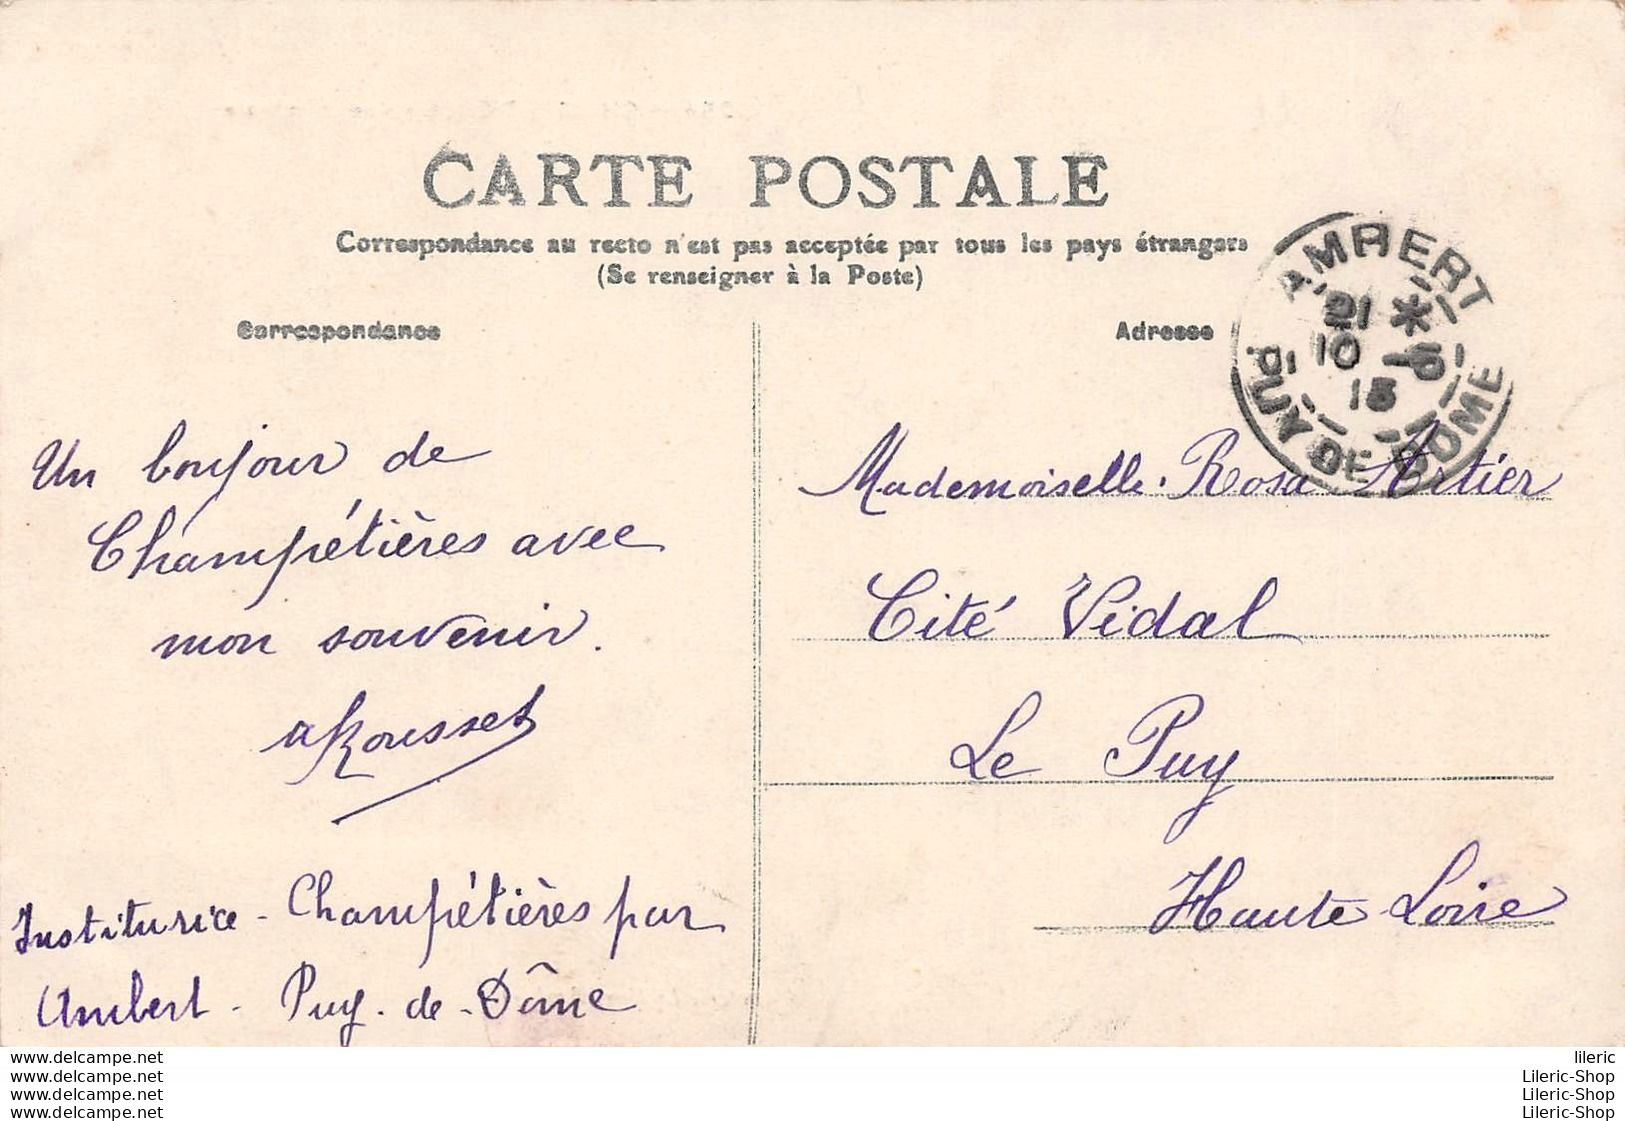 CARTE POSTALE
Correspondance au recto n'est pas acceptée par tous les pays étrangers
(Se renseigner à la Poste)
Correspondance
Un bonjour de
Champétières avec
mon souvenir.
a Rousset
Institutrice - Champétières par
Ambert - Puy-de-Dôme
Adresse
AMBERT
21 *
10
15
PUY DE DOME
Mademoiselle Rosa Artier
Cité Vidal
Le Puy
Haute-Loire
www.delcampe.net
www.delcampe.net
www.delcampe.net
www.delcampe.net
lileric
Lileric-Shop
Lileric-Shop
Lileric-Shop